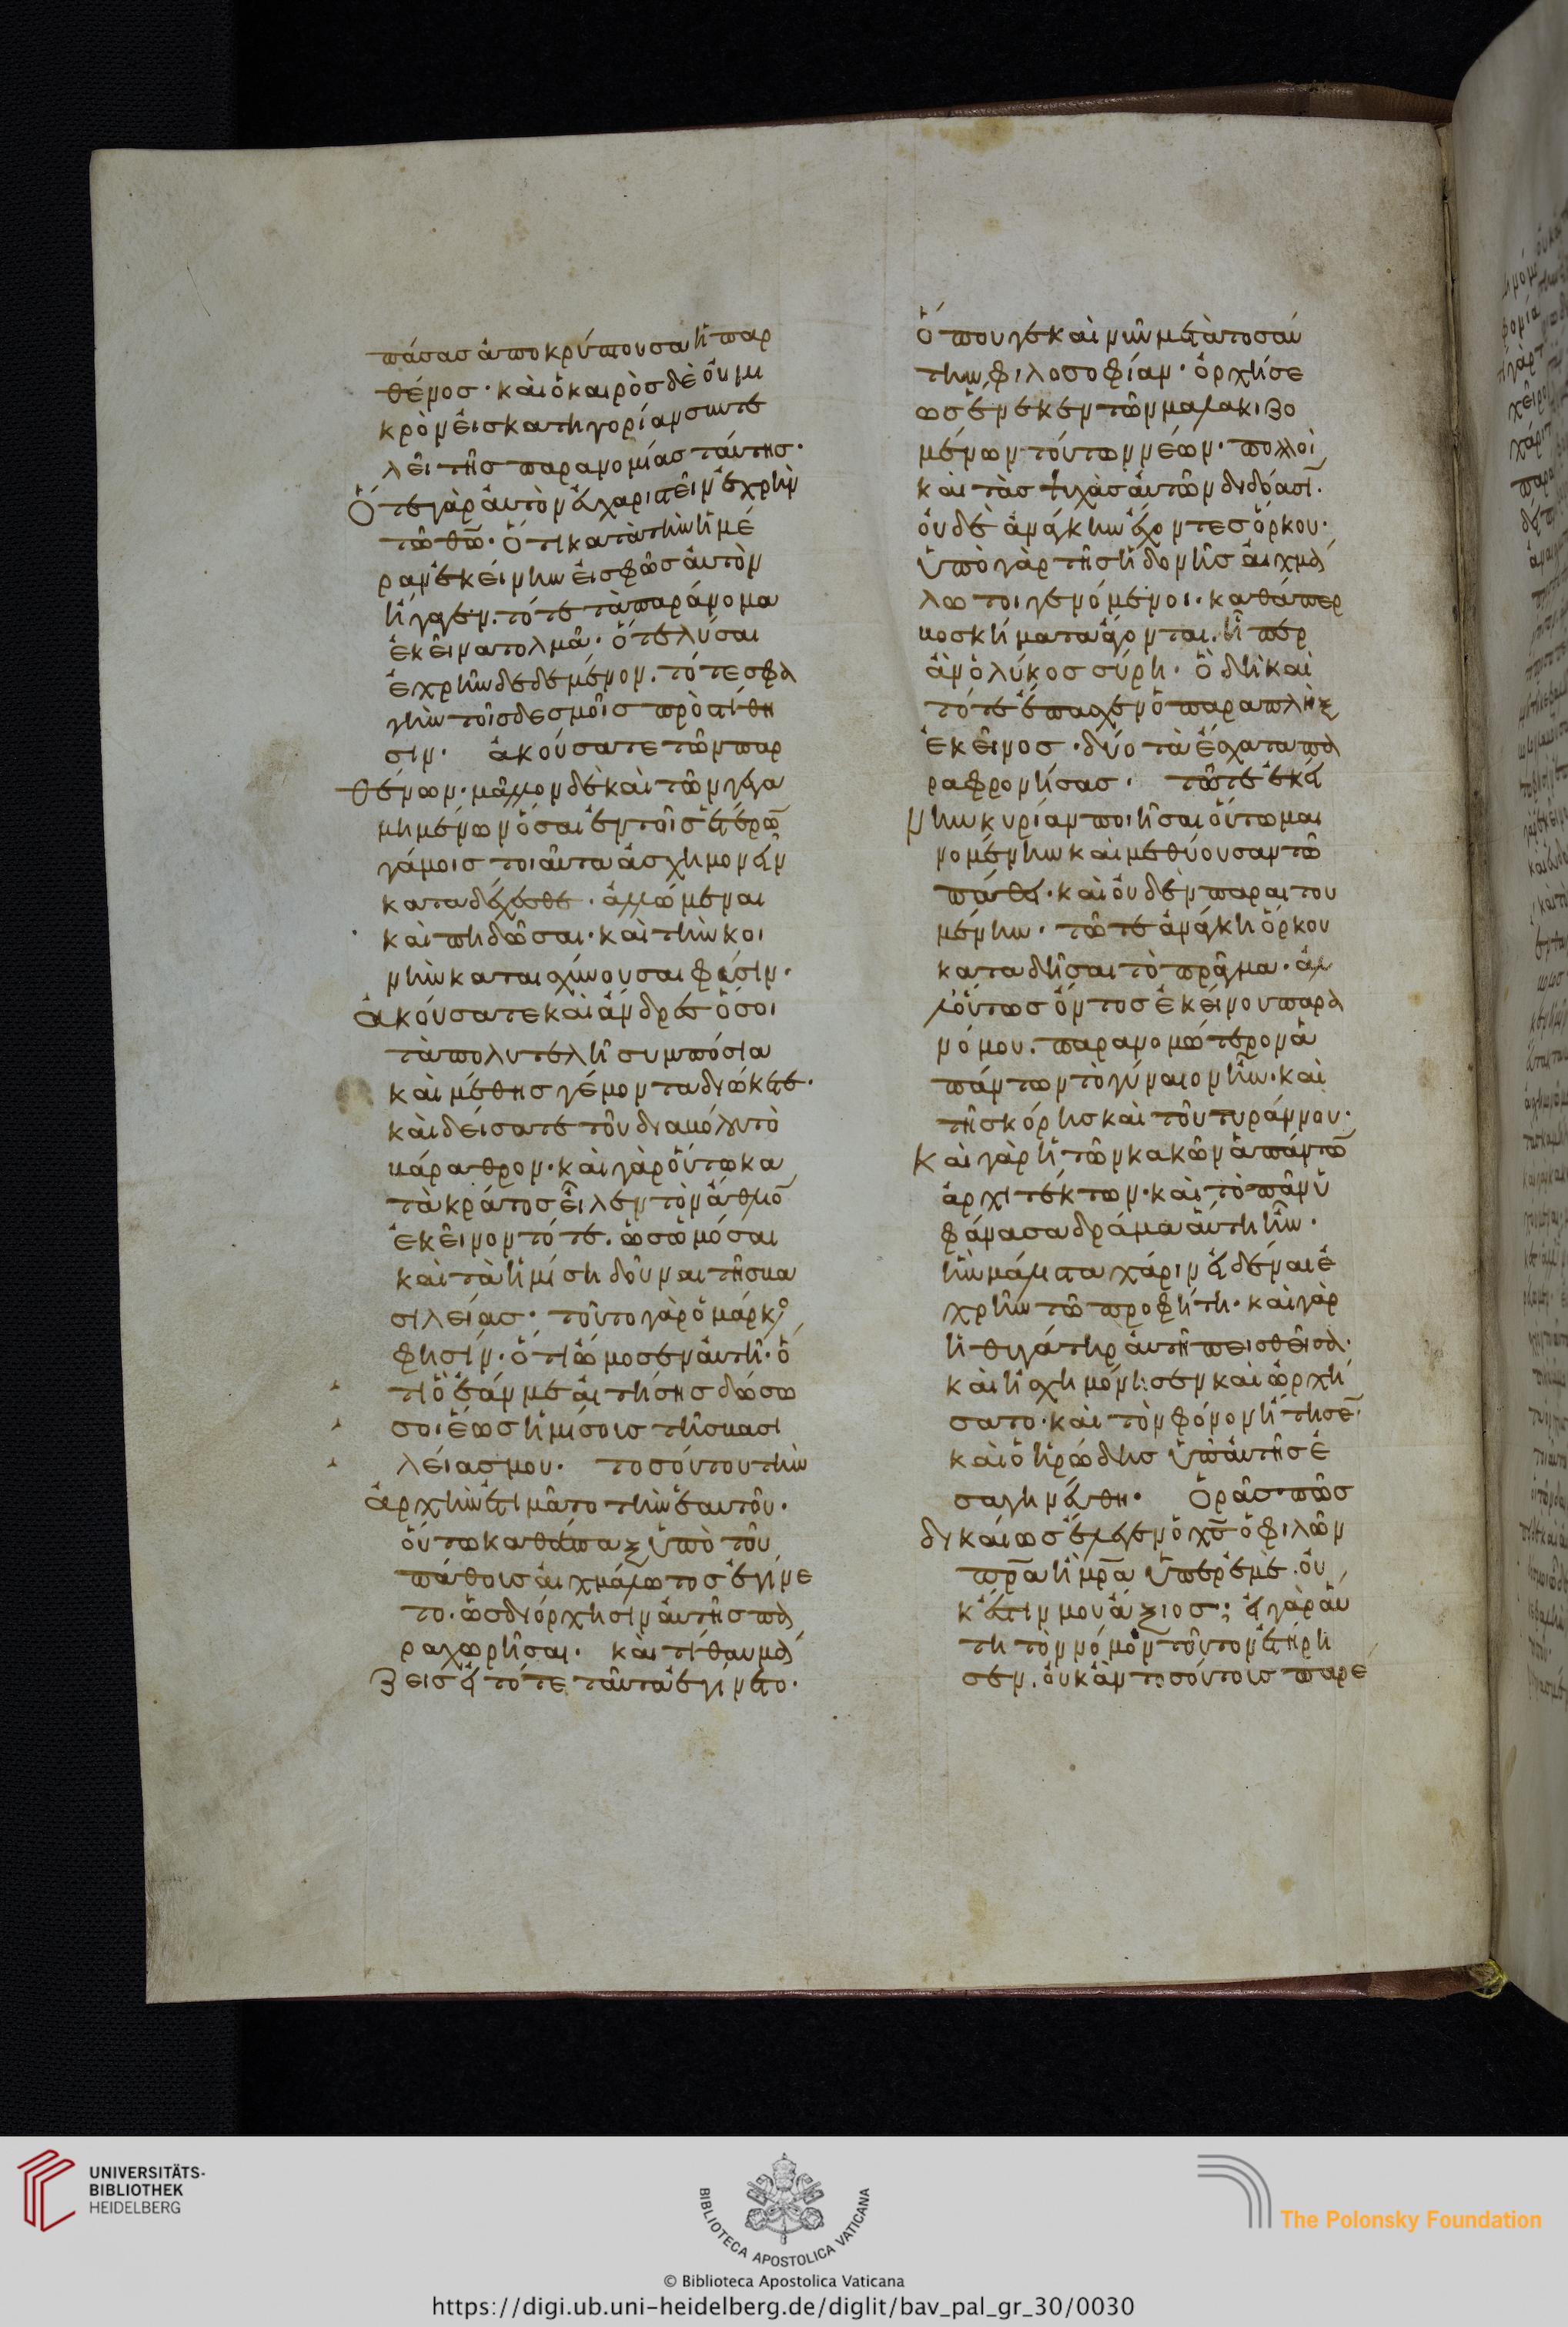 πάσας ἀποκρύπτουσα ἡ παρ
θένος· καὶ ὁ καιρὸς δὲ οὐ μι
κρὸν εἰς κατηγορίαν συντε
λεῖ τῆς παρανομίας ταύτης·
Ὅτε γὰρ αὐτὸν εὐχαριστεῖν ἐχρῆν
τῶ θω̅· ὅτι κατὰ τὴν ἡμέ
ραν ἐκείνην εἰς φῶς αὐτὸν
ἤγαγεν. τότε τὰ παράνομα
ἐκεῖνα τολμᾶ· ὅτε λῦσαι
ἐχρῆν δεδεμένον. τότε σφα
γὴν τοῖς δεσμοῖς προστίθη
σιν· ἀκούσατε τῶν παρ
θένων· μᾶλλον δὲ καὶ τῶν γεγα
μημένων ὅσαι ἐν τοῖς ἑτέρω̅
γάμοις τοιαῦτα ἀσχημονεῖν
καταδέχεσθε· ἁλλόμεναι
καὶ πηδῶσαι· καὶ τὴν κοι
νὴν καταισχύνουσαι φύσιν·
ἀκούσατε καὶ ἄνδρες ὅσοι
τὰ πολυτελῆ συμπόσια
καὶ μέθης γέμοντα διώκετε·
καὶ δείσατε τοῦ διαβόλου τὸ
βάραθρον· καὶ γὰρ οὕτω κα
τὰ κράτος εἷλεν τὸν ἄθλιο̅
ἐκεῖνον τότε. ὡς ὀμόσαι
καὶ τὰ ἡμίση δοῦναι τῆς βα
σιλείας· τοῦτο γὰρ ὁ μάρκο
φησίν· ὅτι ὤμοσεν αὐτῆ· ὅ
τι ὃ ἐάν με αἰτήσης δώσω
σοι ἕως ἡμίσους τῆς βασι
λείας μου· τοσούτου τὴν
ἀρχὴν ἐτιμᾶτο τὴν ἑαυτοῦ·
οὕτω καθάπαξ ὑπὸ τοῦ
πάθους αἰχμάλωτος ἐγίνε
το· ὡς δι' ὄρχησιν αὐτῆς πα
ραχωρῆσαι· καὶ τί θαυμά
ζεις εἰ τότε ταῦτα ἐγίνετο·
ὅπου γε καὶ νῦν μετὰ τοσαύ
την φιλοσοφίαν· ὀρχήσε
ως ἕνεκεν τῶν μαλακιζο
μένων τούτων νέων· πολλοὶ
καὶ τὰς ψυχὰς αὐτῶν διδόασι̅·
οὐδὲ ἀνάγκην ἔχοντες ὅρκου·
ὑπὸ γὰρ τῆς ἡδονῆς αἰχμά
λωτοι γενόμενοι· καθάπερ
βοσκήματα ἄγονται. ἧπερ
ἂν ὁ λύκος σύρη· ὃ δὴ καὶ
τότε ἔπασχεν ὁ παραπλὴξ
ἐκεῖνος· δύο τὰ ἔσχατα πα
ραφρονήσας· τῶ τε ἐκεί
νην κυρίαν ποιῆσαι οὕτω μαι
νομένην καὶ μεθύουσαν τῶ
πάθει· καὶ οὐδὲν παραιτου
μένην· τῶ τε ἀνάγκη ὅρκου
καταδῆσαι τὸ πρᾶγμα· ἀλ
λ' οὕτως ὄντος ἐκείνου παρα
νόμου. παρανομώτερον ἁ
πάντων τὸ γύναιον ἦν· καὶ
τῆς κόρης καὶ τοῦ τυράννου·
Καὶ γὰρ ἡ τῶν κακῶν ἁπάντω̅
ἀρχιτέκτων· καὶ τὸ πᾶν ὑ
φάνασα δρᾶμα αὕτη ἦν·
ἣν μάλιστα χάριν εἰδέναι ἐ
χρῆν τῶ προφήτη· καὶ γὰρ
ἡ θυγάτηρ αὐτῆ πεισθεῖσα·
καὶ ἠσχημόνησεν καὶ ὠρχή
σατο· καὶ τὸν φόνον ἤτησε̅·
καὶ ὁ ἡρώδης ὑπ' αὐτῆς ἐ
σαγηνεύθη· Ὁρᾶς πῶς
δικαίως ἔλεγεν ὁ χς̅ ὁ φιλῶν
πρ̅α ἢ μρ̅α ὑπὲρ ἐμὲ· οὐ
κ ἔστιν μου ἄξιος; εἰ γὰρ αὕ
τη τὸν νόμον τοῦτον ἐτήρη
σεν. οὐκ ἂν τοσούτους παρέ
UNIVERSITÄTS-
BIBLIOTHEK
HEIDELBERG
BIBLIOTECA APOSTOLICA VATICANA
The Polonsky Foundation
© Biblioteca Apostolica Vaticana
https://digi.ub.uni-heidelberg.de/diglit/bav_pal_gr_30/0030